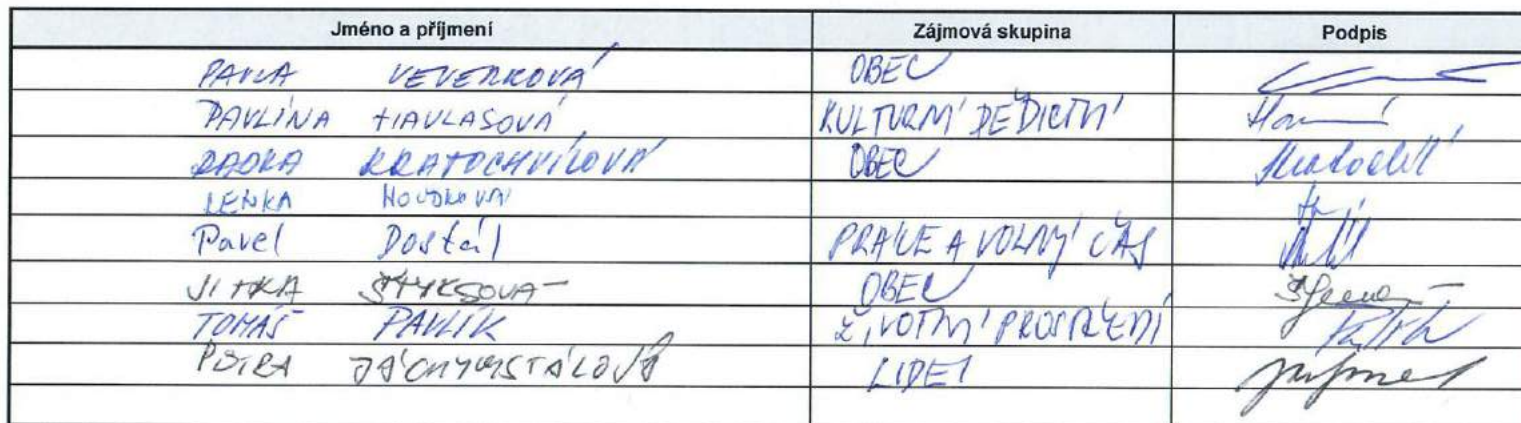 Jméno a příjmení Zájmová skupina Podpis
PAVLA VEVERKOVÁ OBEC
PAVLÍNA HAVLASOVÁ KULTURNÍ DĚDICTVÍ
RADKA KRATOCHVÍLOVÁ OBEC
LENKA
Pavel Dostál PRÁCE A VOLNÝ ČAS
JITKA ŠTYKSOVÁ OBEC
TOMÁŠ PAVLÍK ŽIVOTNÍ PROSTŘEDÍ
PETRA JÁCHYMSTÁLOVÁ LIDÉ